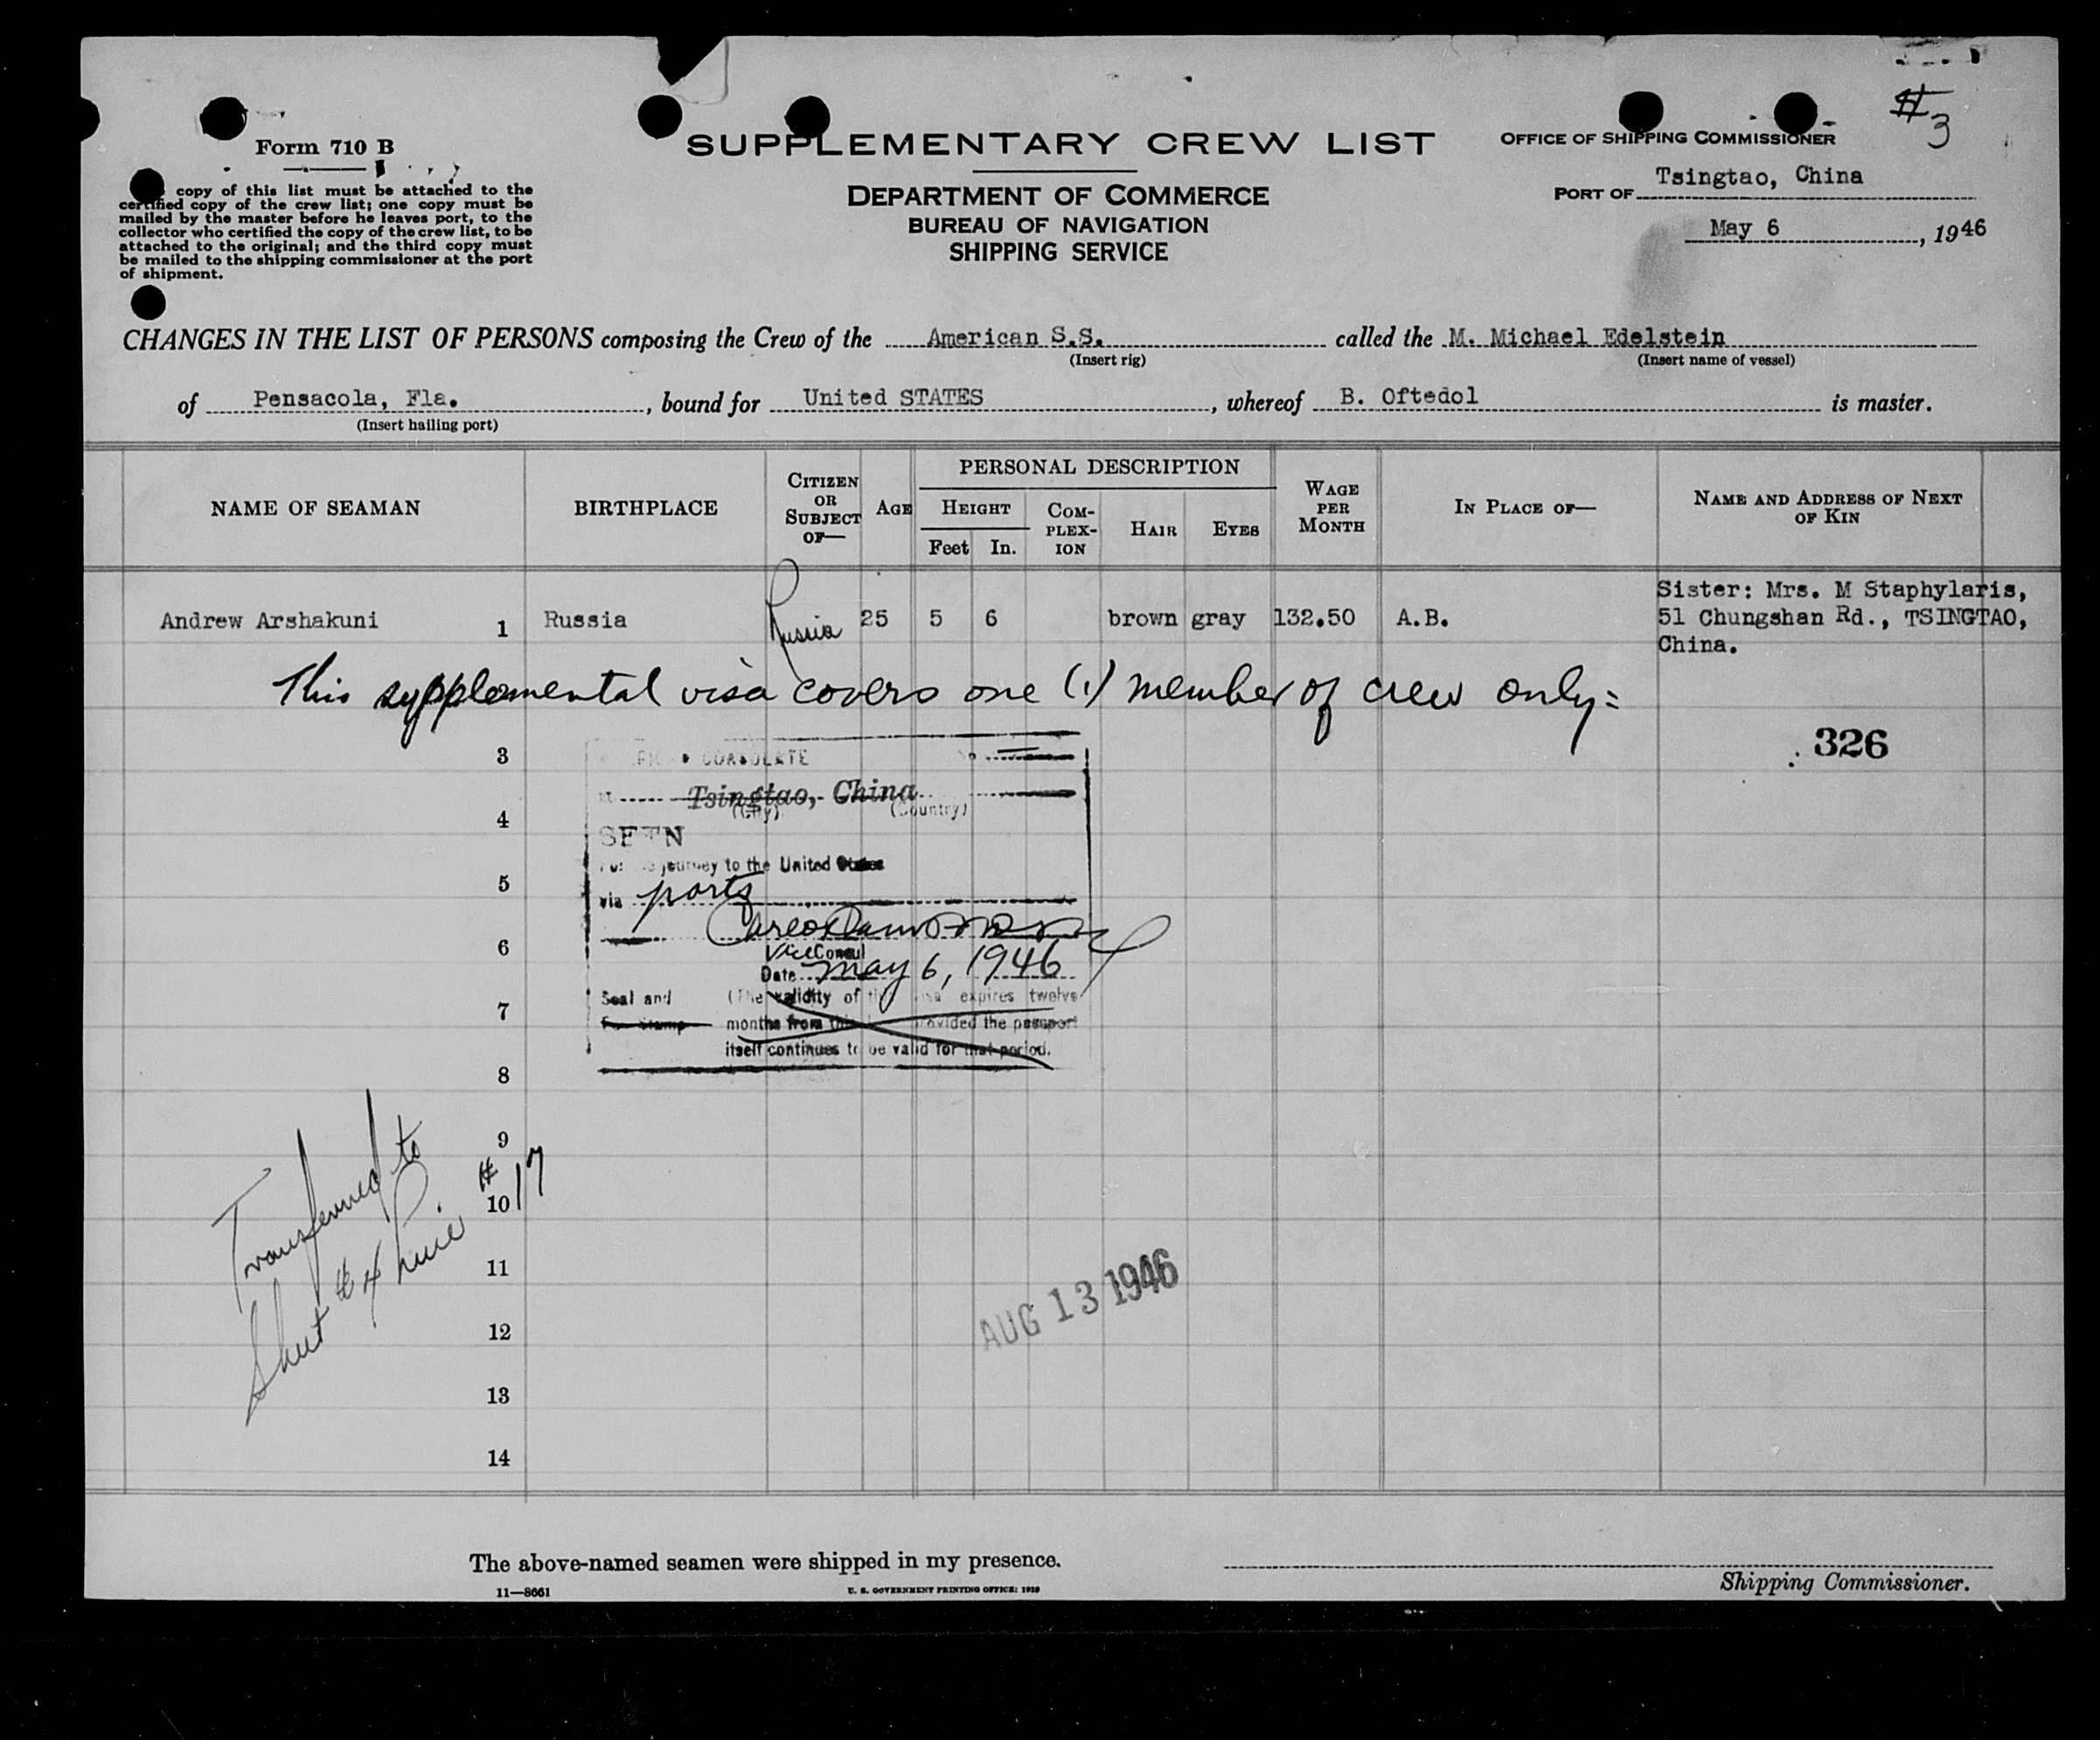 #3
Form 710 B
copy of this list must be attached to the
certified copy of the crew list; one copy must be
mailed by the master before he leaves port, to the
collector who certified the copy of the crew list, to be
attached to the original; and the third copy must
be mailed to the shipping commissioner at the port
of shipment.
SUPPLEMENTARY CREW LIST
DEPARTMENT OF COMMERCE
BUREAU OF NAVIGATION
SHIPPING SERVICE
OFFICE OF SHIPPING COMMISSIONER
PORT OF Tsingtao, China
May 6, 1946
CHANGES IN THE LIST OF PERSONS composing the Crew of the American S.S. called the M. Michael Edelstein
(Insert rig) (Insert name of vessel)
of Pensacola, Fla., bound for United STATES, whereof B. Oftedol is master.
(Insert hailing port)
NAME OF SEAMAN
BIRTHPLACE
CITIZEN OR SUBJECT OF—
AGE
PERSONAL DESCRIPTION
HEIGHT
Feet In.
COM-PLEX-ION
HAIR
EYES
WAGE PER MONTH
IN PLACE OF—
NAME AND ADDRESS OF NEXT OF KIN
Andrew Arshakuni 1 Russia Russia 25 5 6 brown gray 132.50 A.B.
Sister: Mrs. M Staphylaris,
51 Chungshan Rd., TSINGTAO,
China.
This supplemental visa covers one (1) member of crew only=
326
3
4
5
6
7
8
9
10
11
12
13
14
Tsingtao, China
(City) (Country)
SEEN
journey to the United States
via ports
Vice Consul
Date May 6, 1946
Seal and (The validity of this visa expires twelve
Fee Stamp months from this provided the passport
itself continues to be valid for that period.
Transferred to
Sheet #4 Line #17
AUG 13 1946
The above-named seamen were shipped in my presence.
Shipping Commissioner.
11—8661
U. S. GOVERNMENT PRINTING OFFICE: 1929